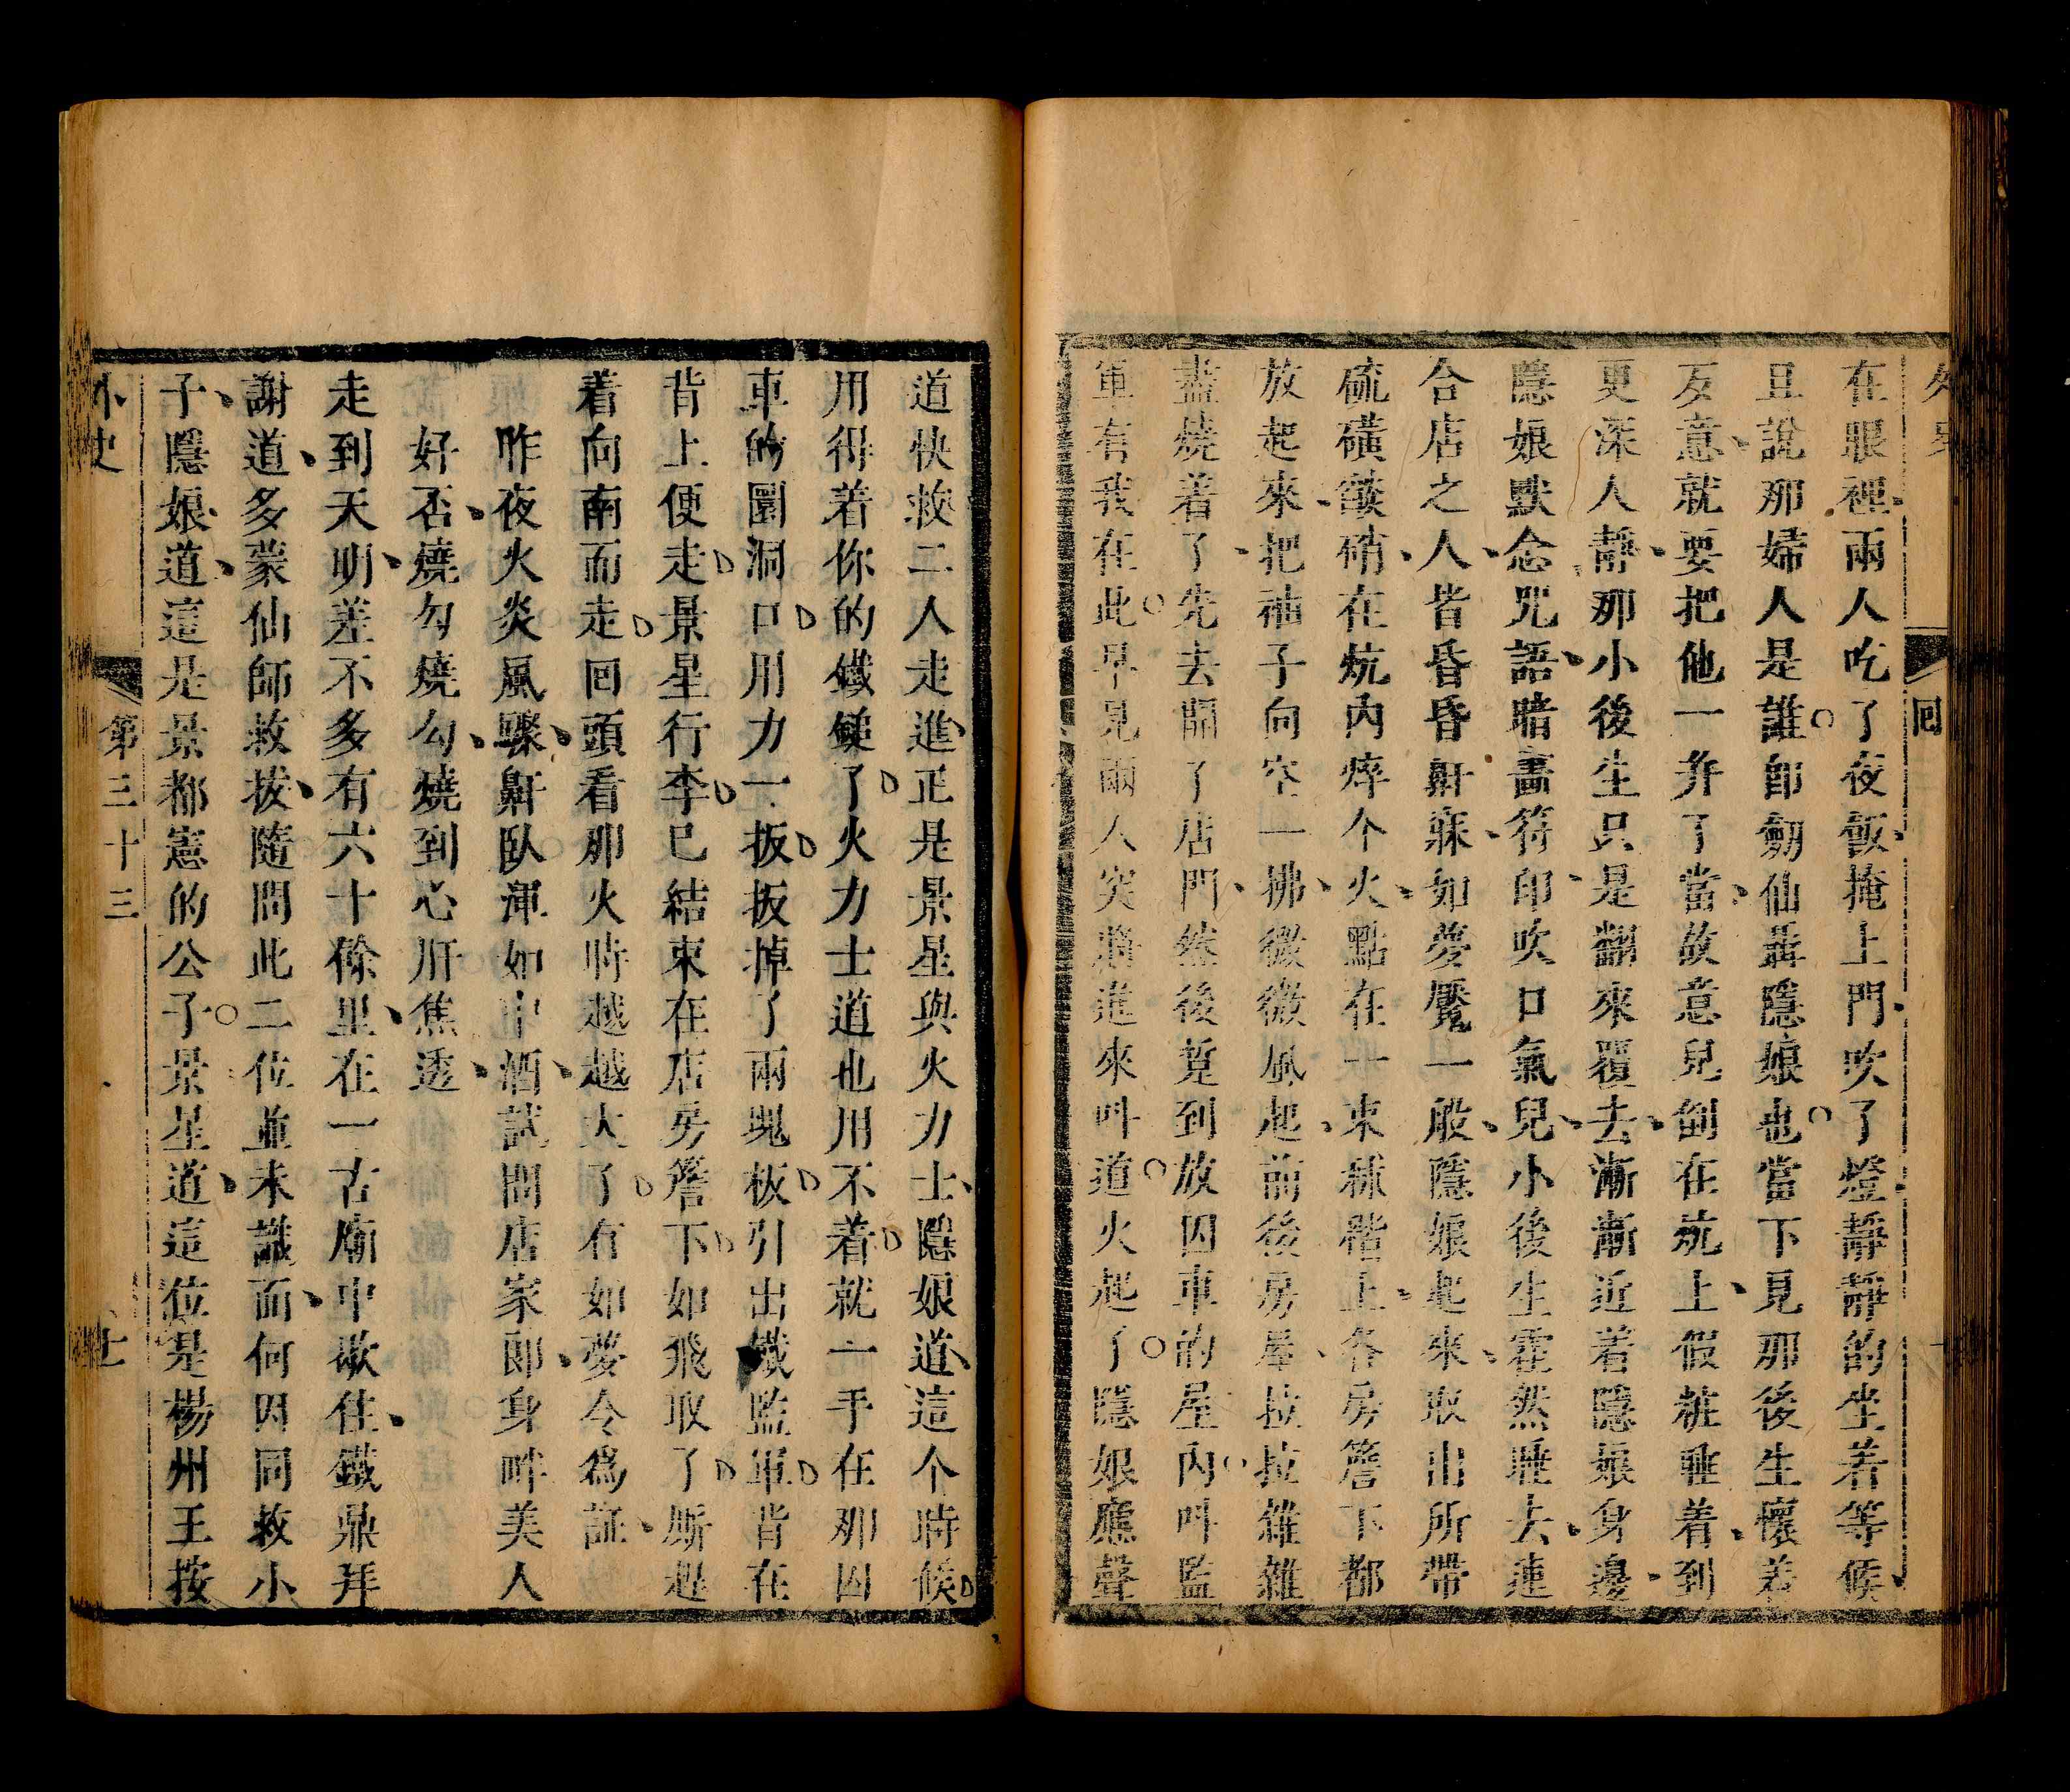 外史
回
在眼裡兩人吃了夜飯掩上門吹了燈靜靜的坐若等候
且說那婦人是誰卽劒仙聶隱娘也當下見那後生懷着
反意就要把他一幷了當故意兒倒在炕上假粧睡着到
更深人靜那小後生只是翻來覆去漸漸近着隱娘身邊
隱娘默念咒語暗畵符印吹口氣兒小後生霍然睡去連
合店之人皆昏昏鼾寐如夢魘一般隱娘起來取出所帶
硫磺燄硝在炕內焠个火點在一束秫稭上各房簷下都
放起來把袖子向空一拂微微風起前後房屋拉拉雜雜
盡燒着了先去開了店門然後竟到放囚車的屋內呌監
軍有我在此早見兩人突將進來呌道火起了隱娘應聲
道快救二人走進正是景星與火力士隱娘道這个時候
用得着你的鐵鎚了火力士道也用不着就一手在那囚
車的圜洞口用力一扳扳掉了兩塊板引出鐵監軍背在
背上便走景星行李已結束在店房簷下如飛取了厮趕
着向南而走回頭看那火時越越大了有如夢令爲証
昨夜火炎風驟鼾臥渾如中酒試問店家郞身畔美人
好否燒勾燒勾燒到心肝焦透
走到天明差不多有六十餘里在一古廟中歇住鐵鼎拜
謝道多蒙仙師救拔隨問此二位並未識面何因同救小
子隱娘道這是景都憲的公子景星道這位是楊州王按
外史
第三十三
十